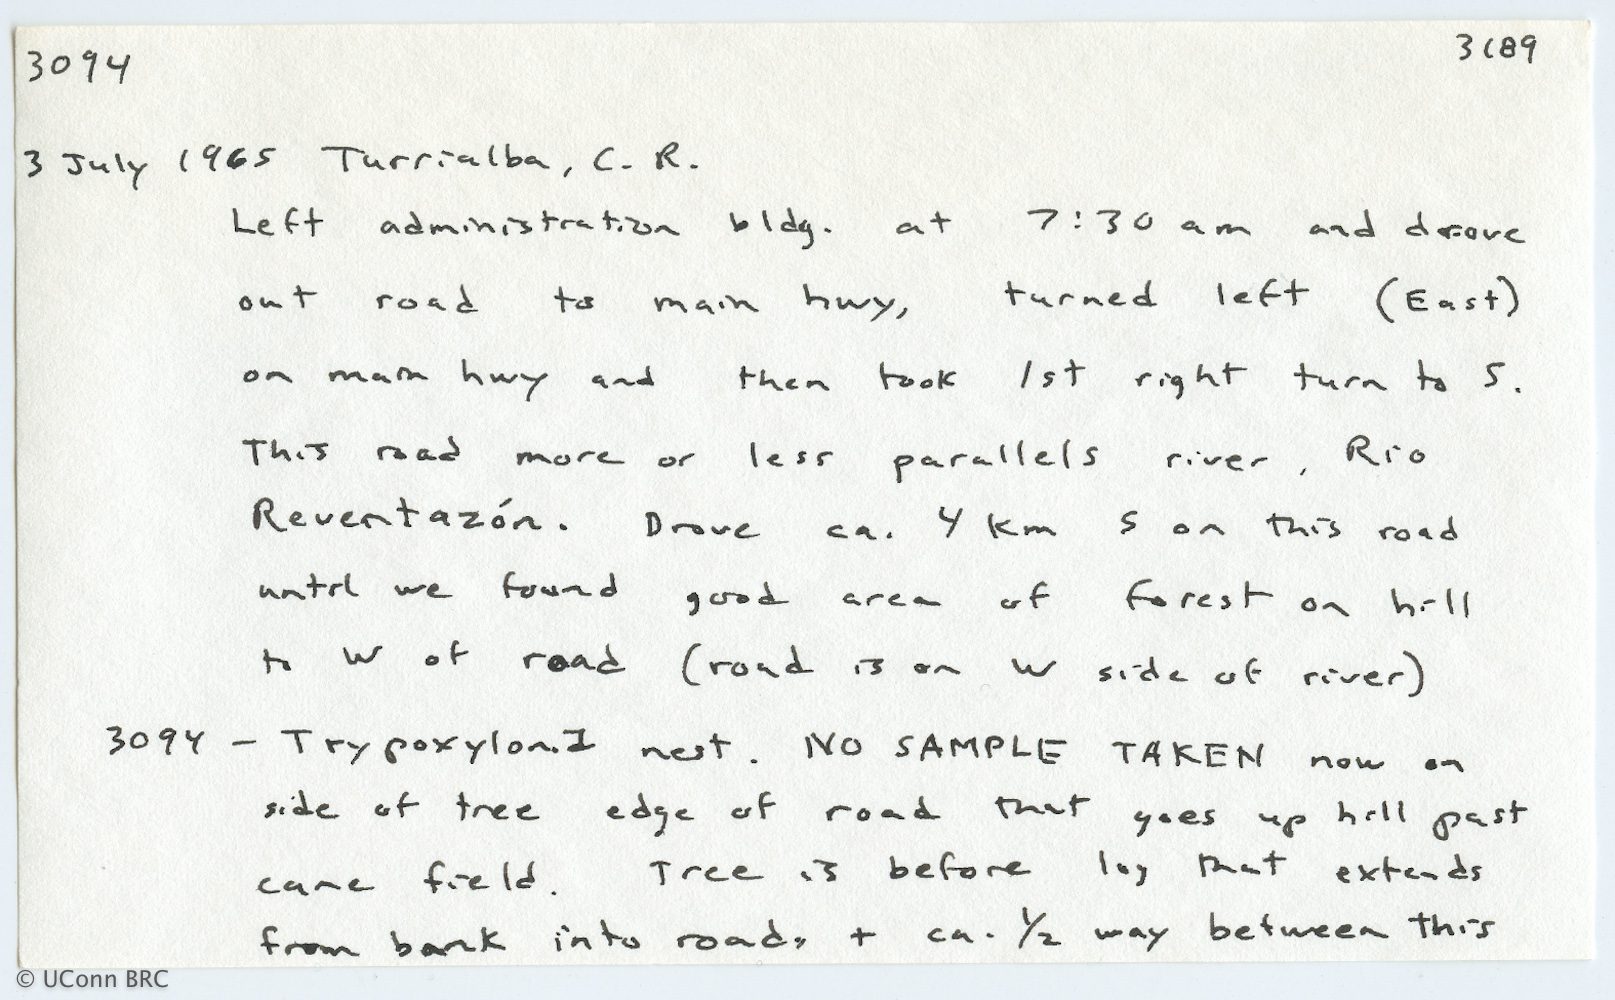 3094 3189
3 July 1965 Turrialba, C. R.
Left administration bldg. at 7:30 am and drove
out road to main hwy, turned left (East)
on main hwy and then took 1st right turn to S.
This road more or less parallels river, Rio
Reventazón. Drove ca. 4 km S on this road
until we found good area of forest on hill
to W of road (road is on W side of river)
3094 - Trypoxylon.I nest. NO SAMPLE TAKEN now on
side of tree edge of road that goes up hill past
cane field. Tree is before log that extends
from bank into road, + ca. 1/2 way between this
© UConn BRC